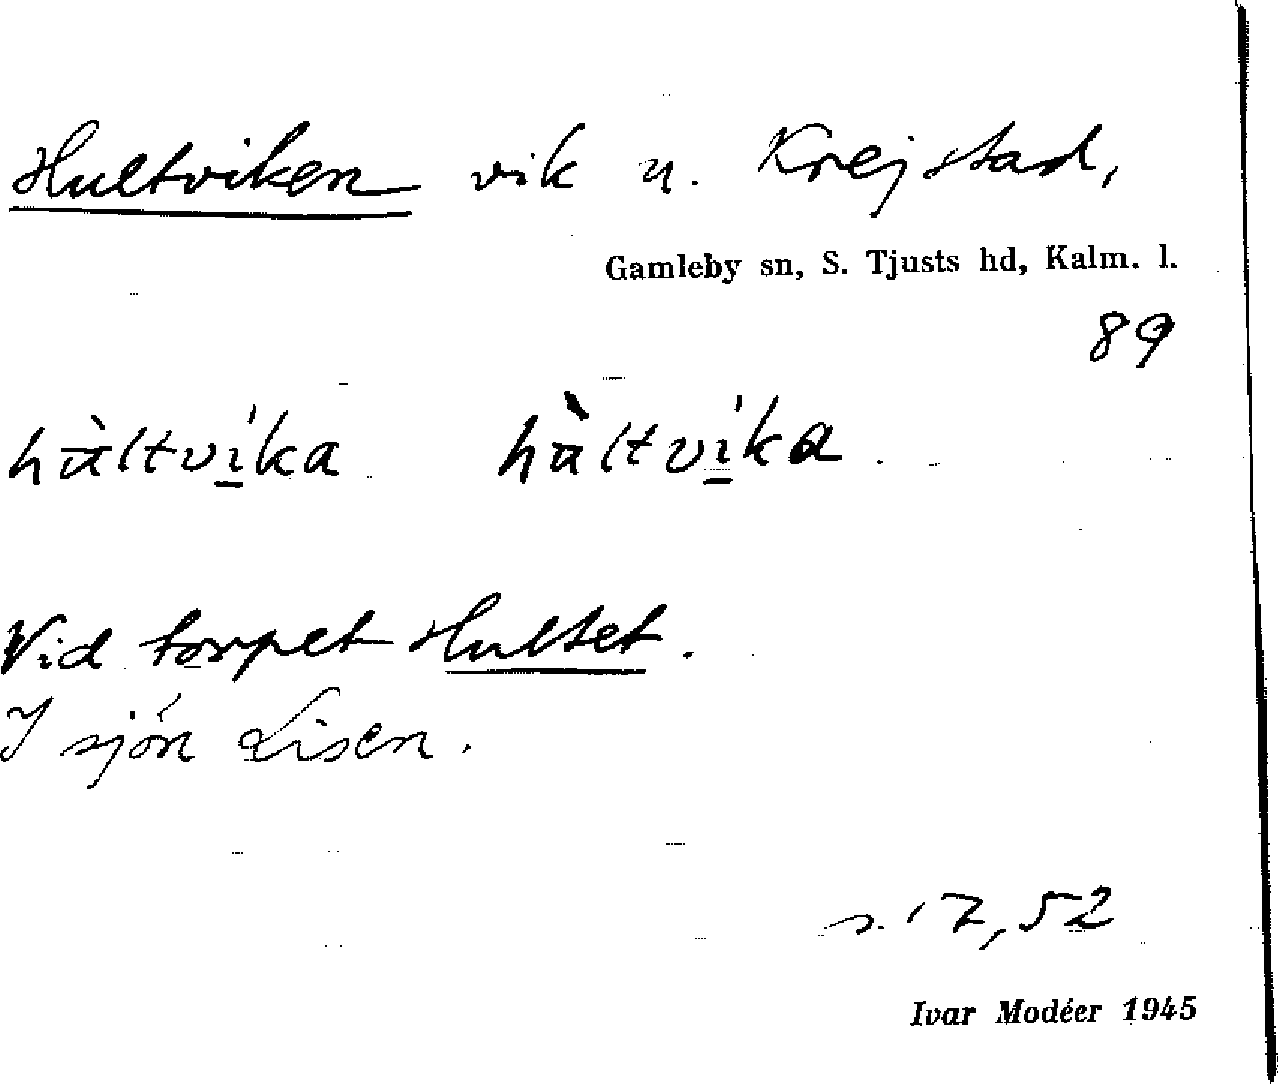 Hultviken vik u. Krejstad,
Gamleby sn, S. Tjusts hd, Kalm. l.
89
hùltvi̲ka hùltvi̲ka.
Vid torpet Hultet.
I sjön Lisen.
s. 17, 52
Ivar Modéer 1945